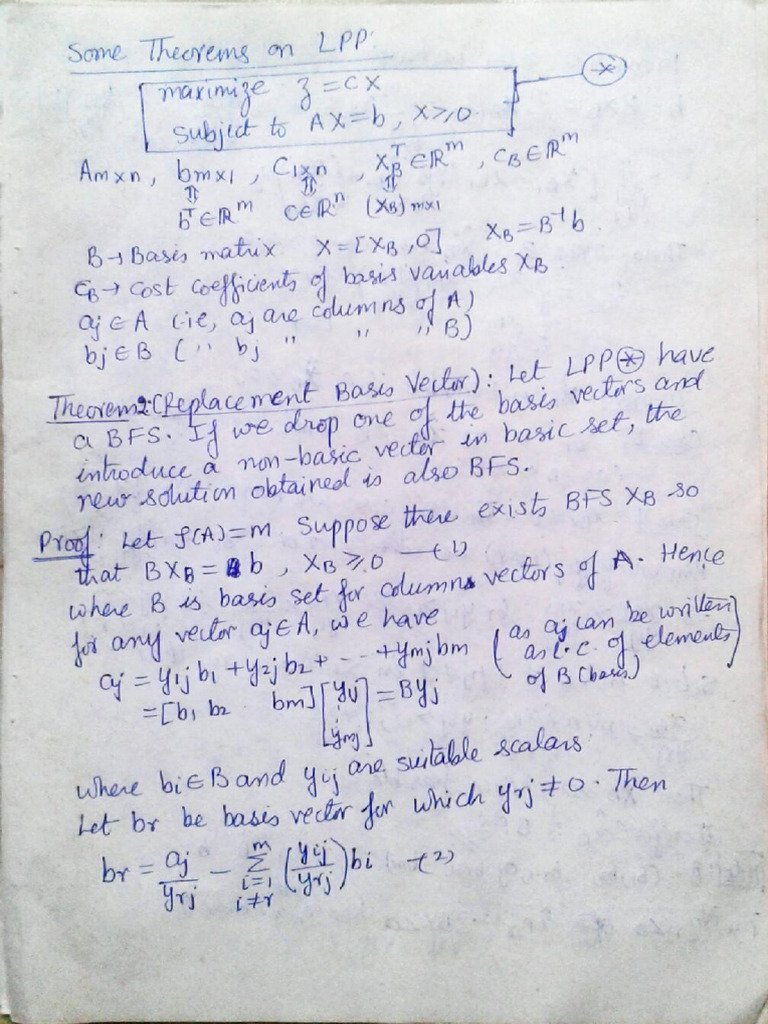 Some Theorems on LPP:
maximize z = cx
subject to AX=b, X≥0
(*)
Am×n, bm×1, C1×n, XB^T ∈ ℝ^m, CB ∈ ℝ^m
⇕ ⇕ ⇕
b^T ∈ ℝ^m C ∈ ℝ^n (XB) m×1
B → Basis matrix X = [XB, 0] XB = B^-1 b.
CB → Cost coefficients of basis variables XB.
aj ∈ A (ie, aj are columns of A)
bj ∈ B (" bj " " " B)
Theorem2: (Replacement Basis Vector): Let LPP (*) have
a BFS. If we drop one of the basis vectors and
introduce a non-basic vector in basic set, the
new solution obtained is also BFS.
Proof: Let ρ(A)=m. Suppose there exists BFS XB so
that BXB = b, XB ≥ 0 —(1)
where B is basis set for columns vectors of A. Hence
for any vector aj ∈ A, we have
aj = y1j b1 + y2j b2 + ... + ymj bm (as aj can be written
as l.c. of elements
of B (basis))
= [b1 b2 bm] [y1j ⋮ ymj] = Byj
where bi ∈ B and yij are suitable scalars.
Let br be basis vector for which yrj ≠ 0. Then
br = aj/yrj − Σ_{i=1, i≠r}^{m} (yij/yrj) bi —(2)